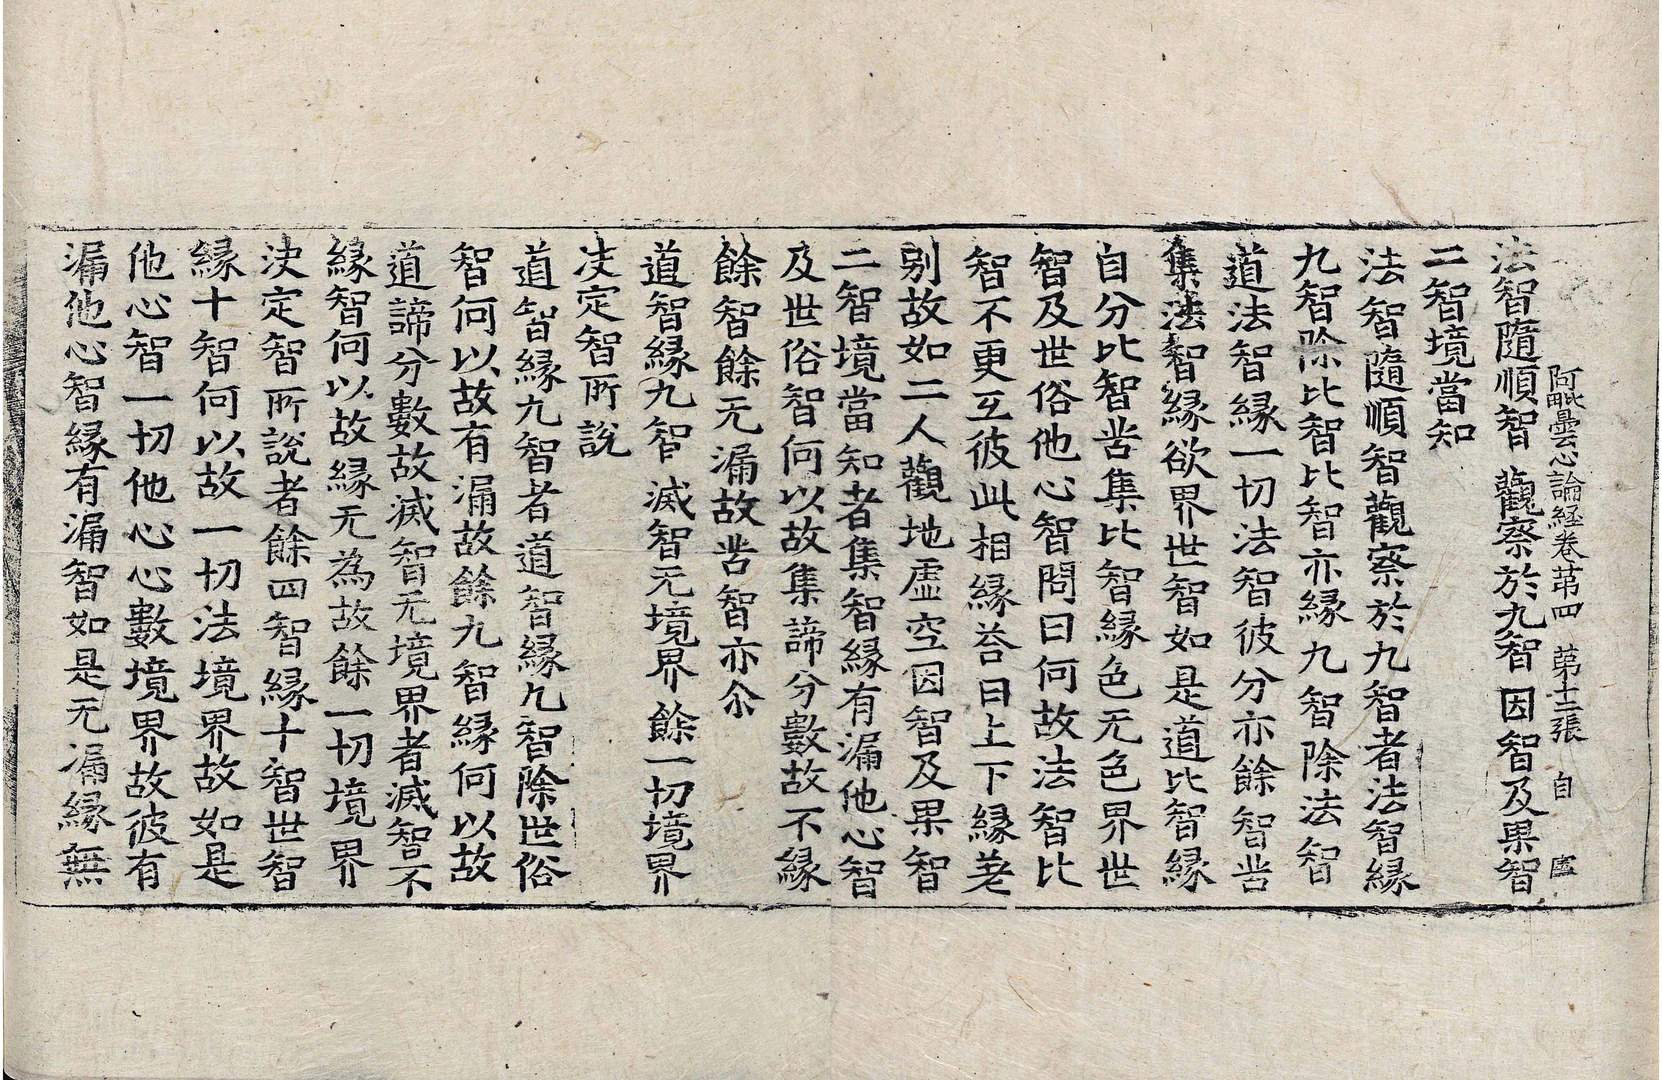 阿毗曇心論経卷苐四　苐十二張　自　廬
法智隨順智　觀察於九智　因智及果智
二智境當知
法智隨順智觀察於九智者法智緣
九智除比智比智亦緣九智除法智
道法智緣一切法智彼分亦餘智苦
集法智緣欲界世智如是道比智緣
自分比智苦集比智緣色无色界世
智及世俗他心智問曰何故法智比
智不更互彼此相緣荅曰上下緣差
别故如二人觀地虛空因智及果智
二智境當知者集智緣有漏他心智
及世俗智何以故集諦分數故不緣
餘智餘无漏故苦智亦尒
道智緣九智　滅智无境界　餘一切境界
决定智所說
道智緣九智者道智緣九智除世俗
智何以故有漏故餘九智緣何以故
道諦分數故滅智无境界者滅智不
緣智何以故緣无為故餘一切境界
决定智所說者餘四智緣十智世智
緣十智何以故一切法境界故如是
他心智一切他心心數境界故彼有
漏他心智緣有漏智如是无漏緣無